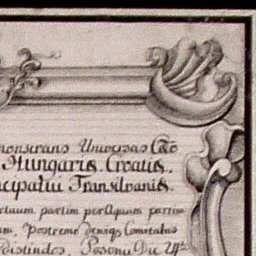 monstrans Universas Cæo
Hungariæ, Croatiæ,
cipatu Transilvaniæ
partim per Aquam partim
um, Postremo deniqs Comitatus
distindos, Posony Die 24ta